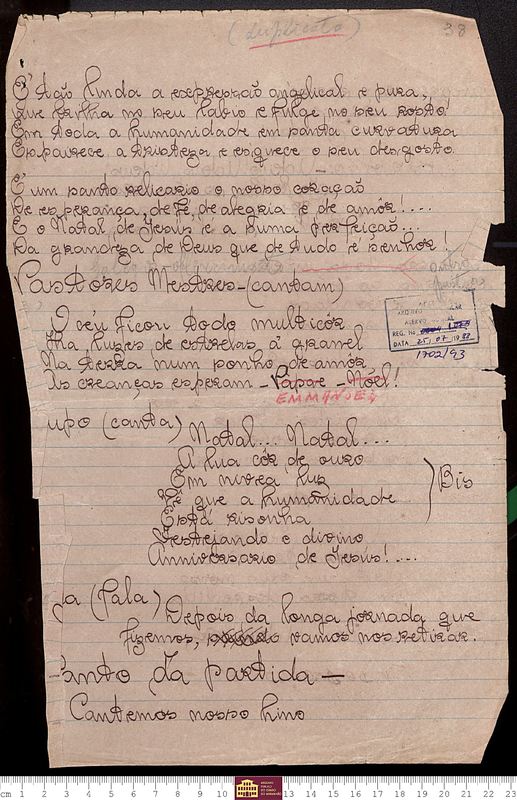 (duplicata)
38
E' tão linda a expressão angelical e pura,
Que brilha no seu labio e fulge no seu rosto!
Em toda a humanidade em santa curvatura
Esmaurece a tristeza e esquece o seu desgosto.
E' um santo relicario o nosso coração
De esperança, de fé, de alegria e de amôr!....
E o Natal de Jesus é a suma perfeição...
Da grandeza de Deus que de tudo é senhor!
Pastores Mestres-(cantam)
O céu ficou todo multicôr
Ha luzes de estrelas, á granel
Na terra, num sonho de amôr
As creanças esperam - Papae - Nóel!
EMMANOEL
ARQUIVO
REG. No.
DATA 25/07/1988
1702/93
upo (canta) Natal... Natal...
A lua côr de ouro
Em nivea luz
E que a humanidade
Está risonha
Bis
Festejando o divino
Anniversario de Jesús!....
ja (fala) Depois da longa jornada que
fizemos, vamos nos retirar.
anto da partida —
Cantemos nosso hino
cm 1 2 3 4 5 6 7 8 9 10 13 14 15 16 17 18 19 20 21 22 23